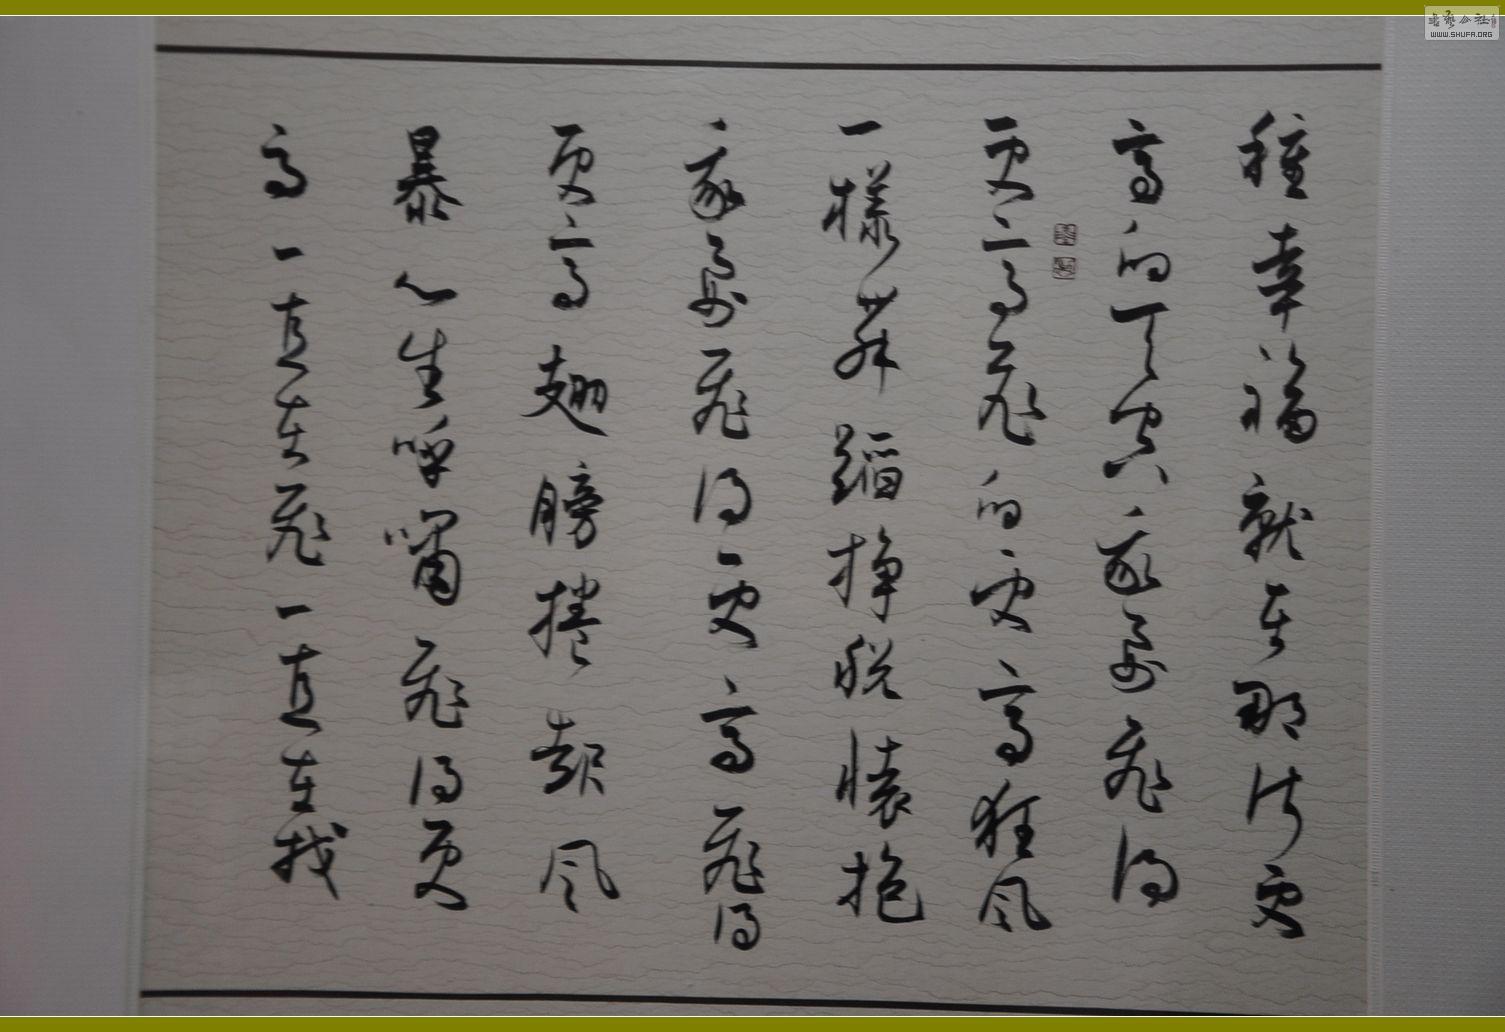 種幸福就在那片更
高的天空我要飛得
更高飛的更高狂风
一樣舞蹈挣脱懷抱
我要飛得更高飛得
更高翅膀捲起风
暴心生呼嘯飛得更
高一直在飛一直在找
書藝公社
WWW.SHUFA.ORG